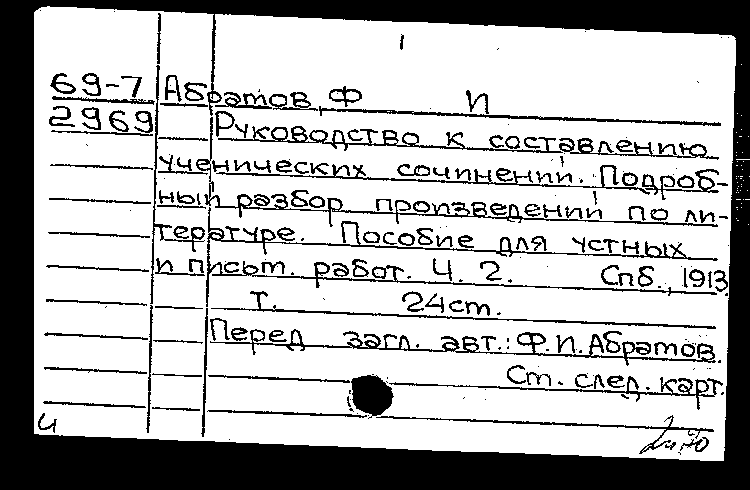 1
69-7 Абратов, Ф И
2969 Руководство к составлению
ученических сочинений. Подроб-
ный разбор произведений по ли-
тературе. Пособие для устных
и письт. работ. Ч. 2. Спб., 1913
т. 24ст.
Перед загл. авт.: Ф.И.Абратов.
Ст. след. карт.
и